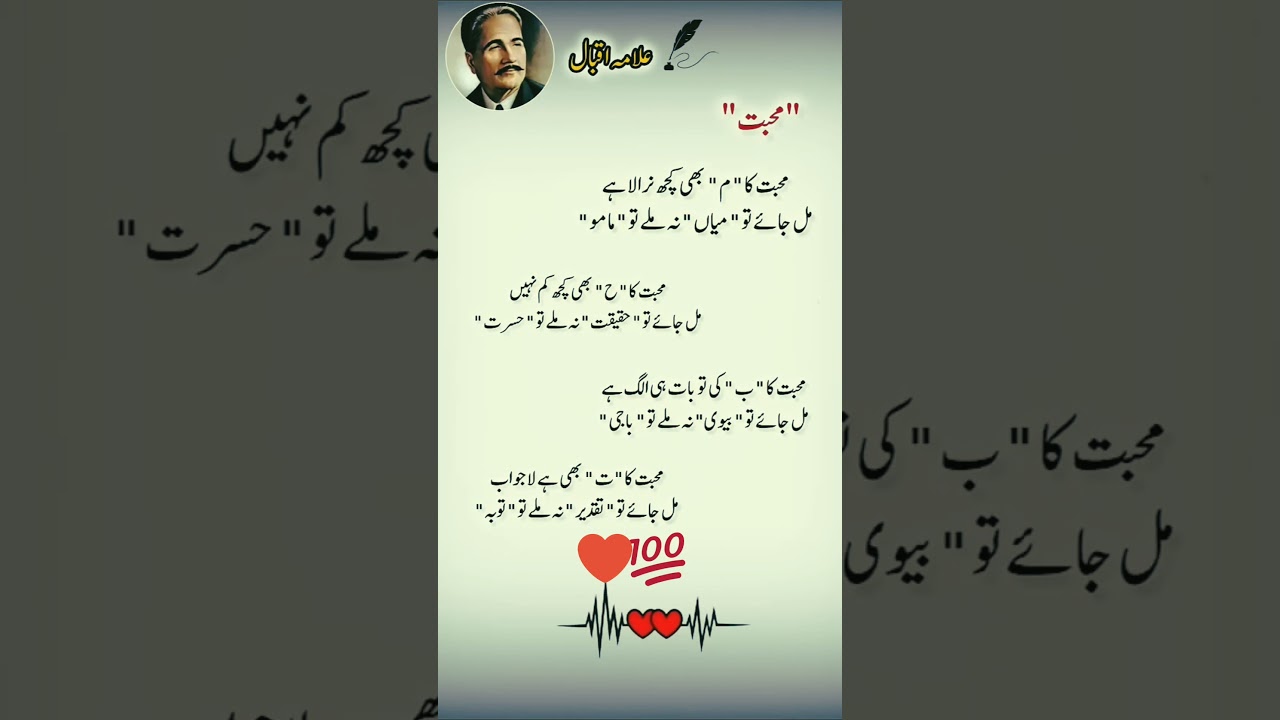 علامہ اقبال
"محبت"
محبت کا "م" بھی کچھ نرالا ہے
مل جائے تو "میاں" نہ ملے تو "مامو"
محبت کا "ح" بھی کچھ کم نہیں
مل جائے تو "حقیقت" نہ ملے تو "حسرت"
محبت کا "ب" کی تو بات ہی الگ ہے
مل جائے تو "بیوی" نہ ملے تو "باجی"
محبت کا "ت" بھی ہے لاجواب
مل جائے تو "تقدیر" نہ ملے تو "توبہ"
100
کچھ کم نہیں
ملے تو "حسرت"
محبت کا "ب" کی
مل جائے تو "بیوی